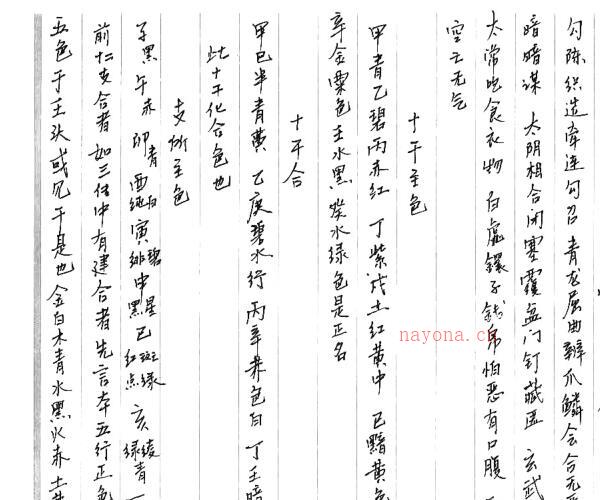 勾陈织造牵连勾召 青龙屈曲鳞爪鳞会合无
暗暗谋 太阴相合闭塞覆盆门钉藏匿 玄武
太常吃食衣物 白虎镙子钱帛怕恶有口腹
空亡无气
十干主色
甲青乙碧丙赤红 丁紫戊土红黄中 己黯黄色
辛金粟色壬水黑癸水绿色是正名
十干合
甲己半青黄 乙庚碧水行 丙辛
色白 丁壬暗
此十干化合色也
支所主色
子黑 午赤 卯青 酉纯白 寅绯碧 申黑星 巳斑绿红点 亥绿绫青
前十二支合者 如三传中有建合者 先言本五行正色
五色于王次或冗于是也 金白木青水黑火赤土黄
nayona.cn